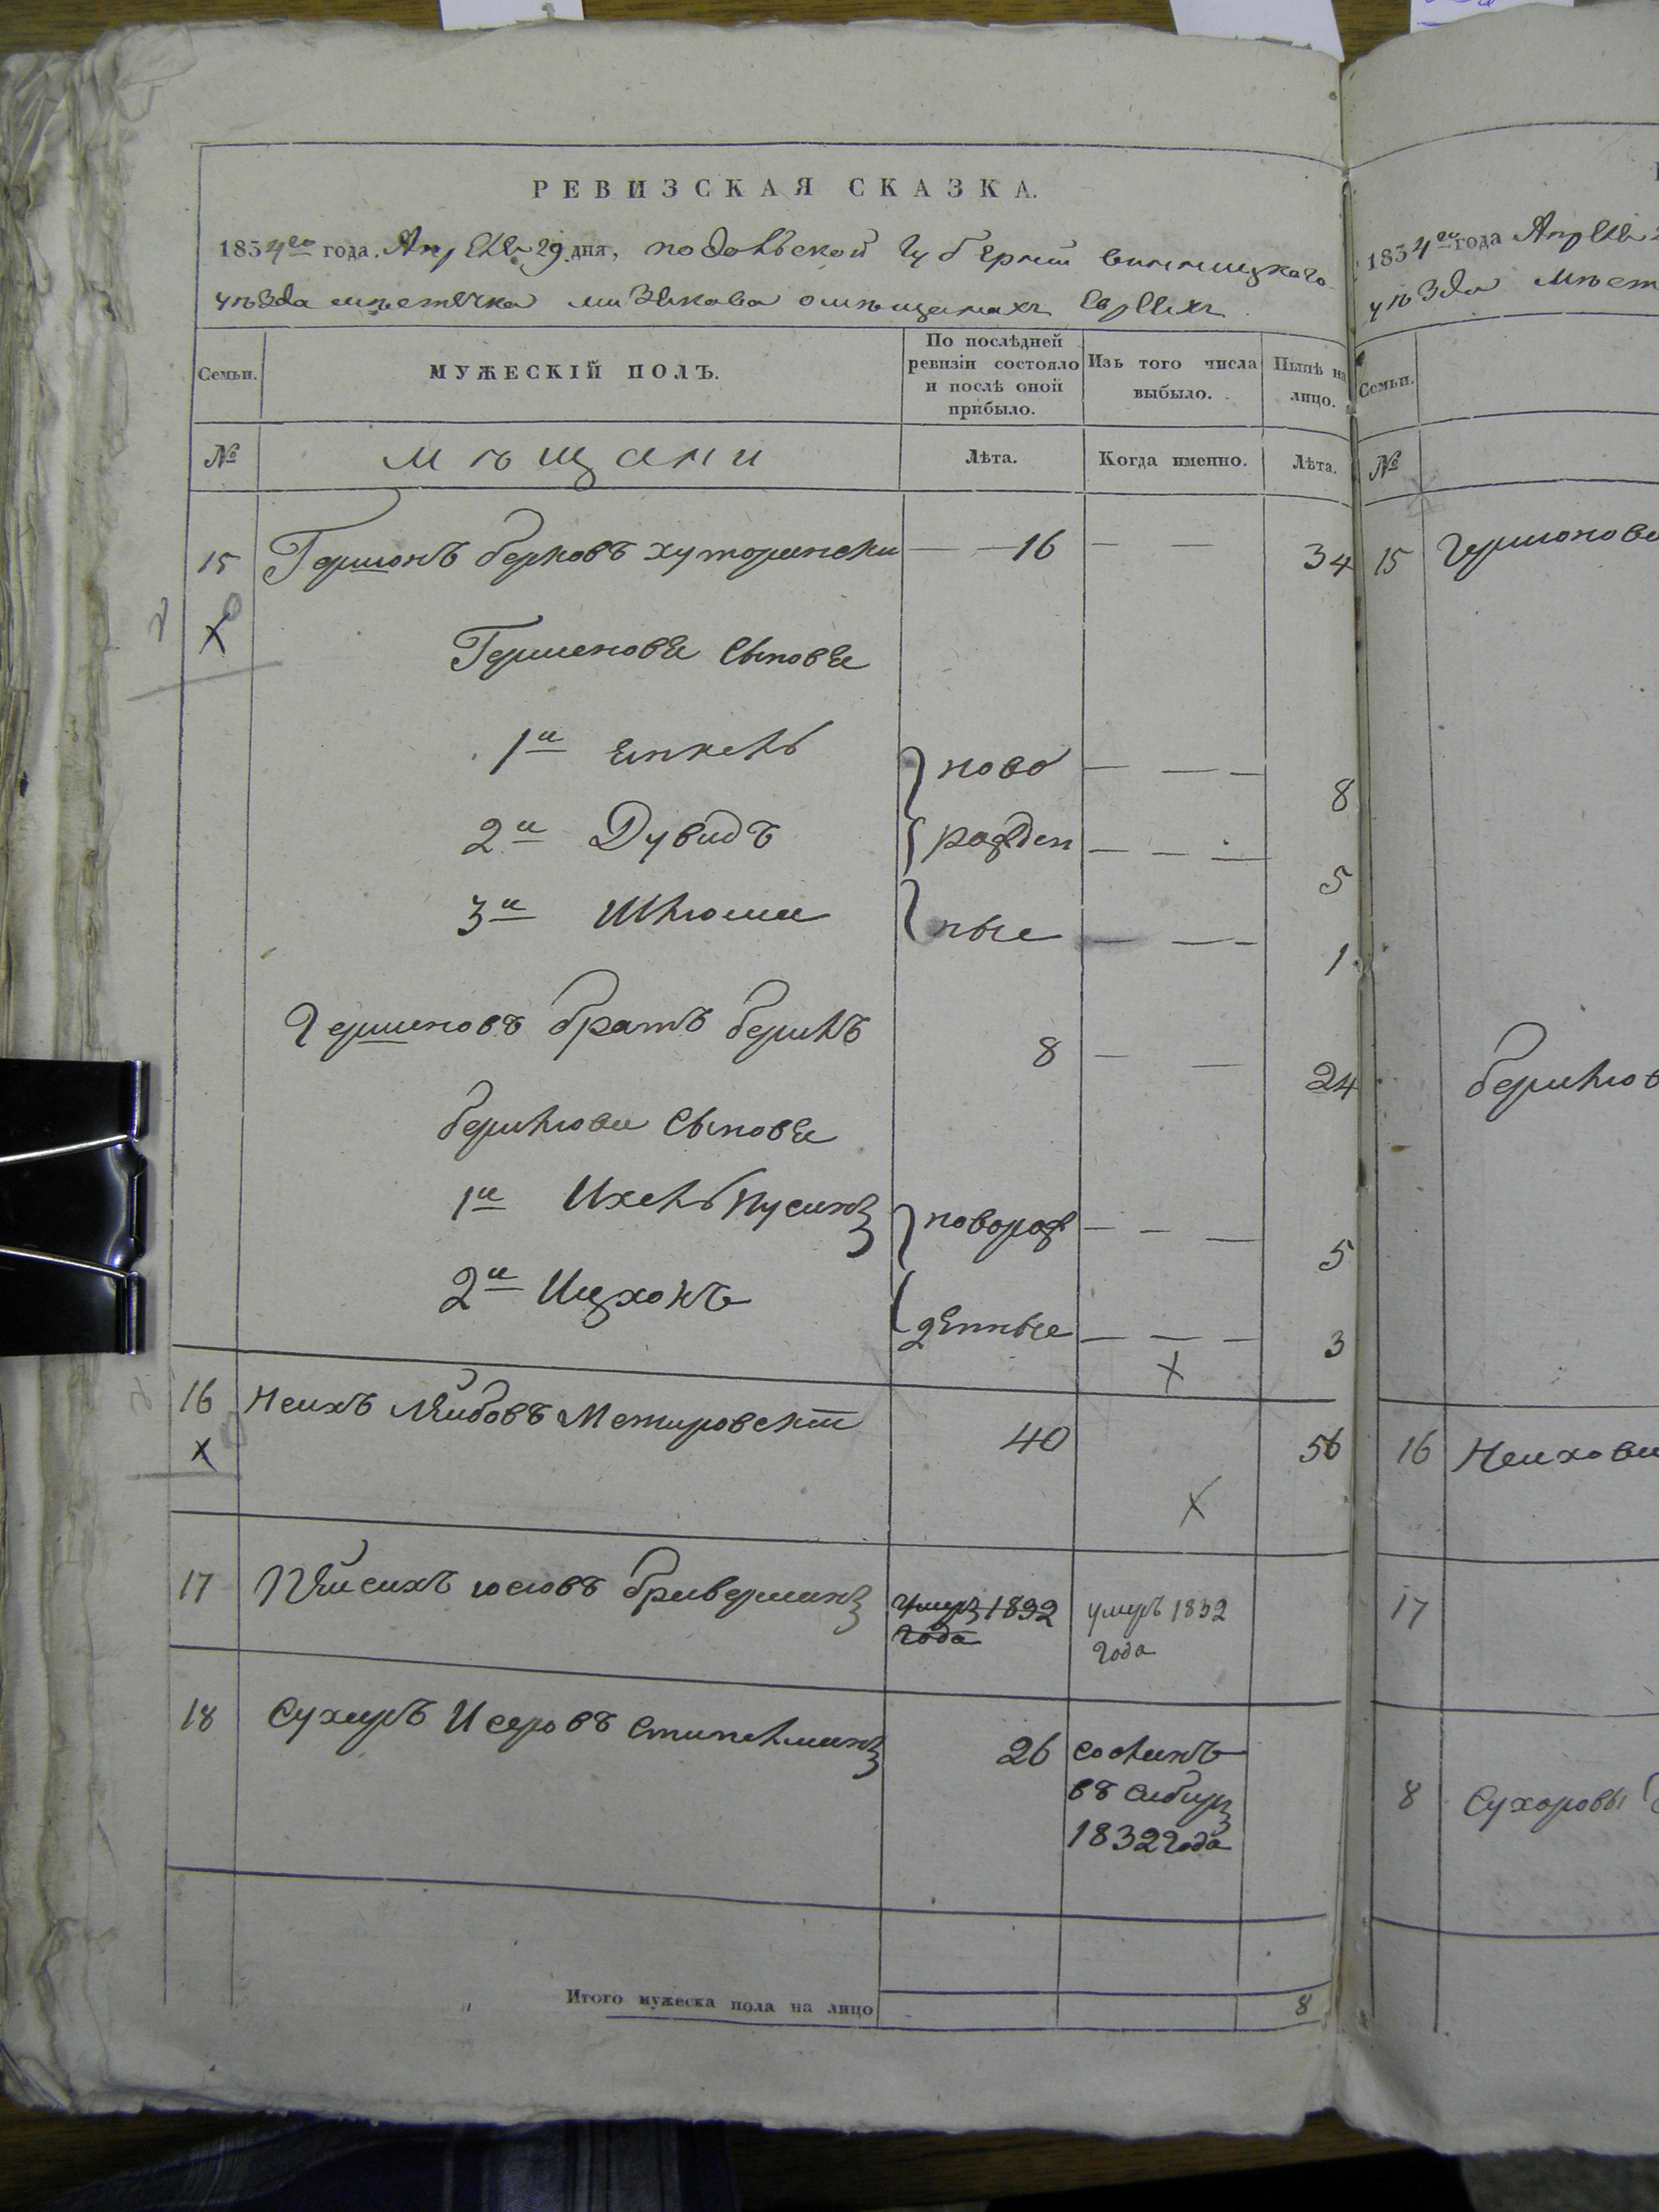 РЕВИЗСКАЯ СКАЗКА.
1834го года Апреля 29 дня, подольской губернии винницкаго
уъзда мъстечка мизякова омъщанахъ Евреяхъ
Семьи.
МУЖЕСКІЙ ПОЛЪ.
По послѣдней ревизіи состояло и послѣ оной прибыло.
Изъ того числа выбыло.
Нынѣ на лицо.
№
мъщани
Лѣта.
Когда именно.
Лѣта.
15 Гершонъ берковъ хуторянски — — 16 — — 34
Х
Гершонова сыновя
1й Янкель ново — — — 8
2й Дувидъ рожден — — — 5
3й Шлюма ные — — — 1
Гершоновъ братъ берилъ 8 — — 24
берилюви сыновя
1й Ихель Нусинъ новорож — — — 5
2й Ицхокъ денные — — — 3
Х
16 Неихъ Лейбовъ Межировскій 40 56
Х Х
17 Пейсихъ юсіовъ бриверманъ умеръ 1832 умеръ 1832
года года
18 Сухеръ Исеровъ 26 сосланъ
въ сибиръ
1832 года
Итого мужеска пола на лицо 8
1834го года Апреля
уъзда мъст
Семьи.
№
15 Гершонова
берилюв
16 Неихови
17
8 Сухоровы